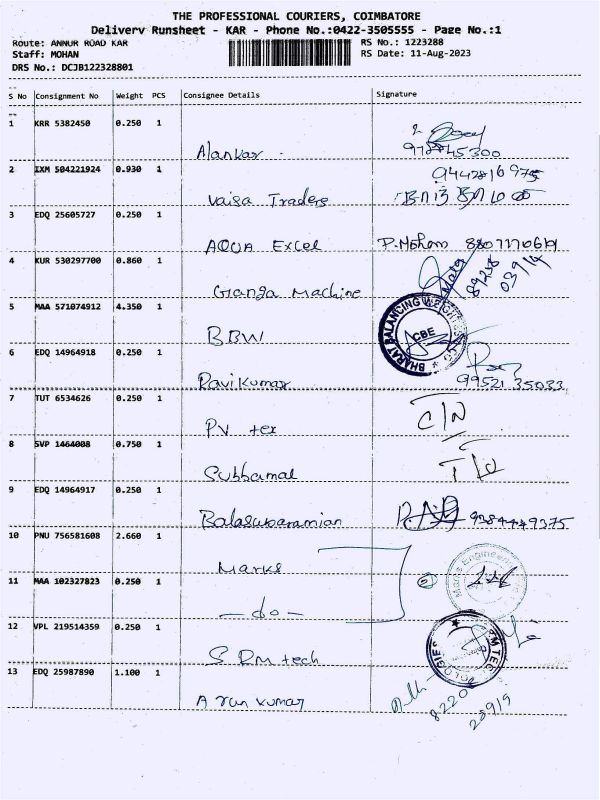 THE PROFESSIONAL COURIERS, COIMBATORE
Delivery Runsheet - KAR - Phone No.:0422-3505555 - Page No.:1
Route: ANNUR ROAD KAR RS No.: 1223288
Staff: MOHAN RS Date: 11-Aug-2023
DRS No.: DCJB122328801
S No Consignment No Weight PCS Consignee Details Signature
1 KRR 5382450 0.250 1
Alankar
2 IXM 504221924 0.930 1
Vaisa Traders
3 EDQ 25605727 0.250 1
AQUA Excel P.Mohan 8807170619
4 KUR 530297700 0.860 1
Ganga Machine
5 MAA 571074912 4.350 1
BBW
BHARAT BALANCING WEIGHTS
CBE
6 EDQ 14964918 0.250 1
Ravikumar 99521 35033
7 TUT 6534626 0.250 1
PV tex C/N
8 SVP 1464008 0.750 1
Subbamal
9 EDQ 14964917 0.250 1
Balasubaramian 9384449375
10 PNU 756581608 2.660 1
Marks
11 MAA 102327823 0.250 1
- do -
12 VPL 219514359 0.250 1
SRM tech
13 EDQ 25987890 1.100 1
Arunkumar 8220